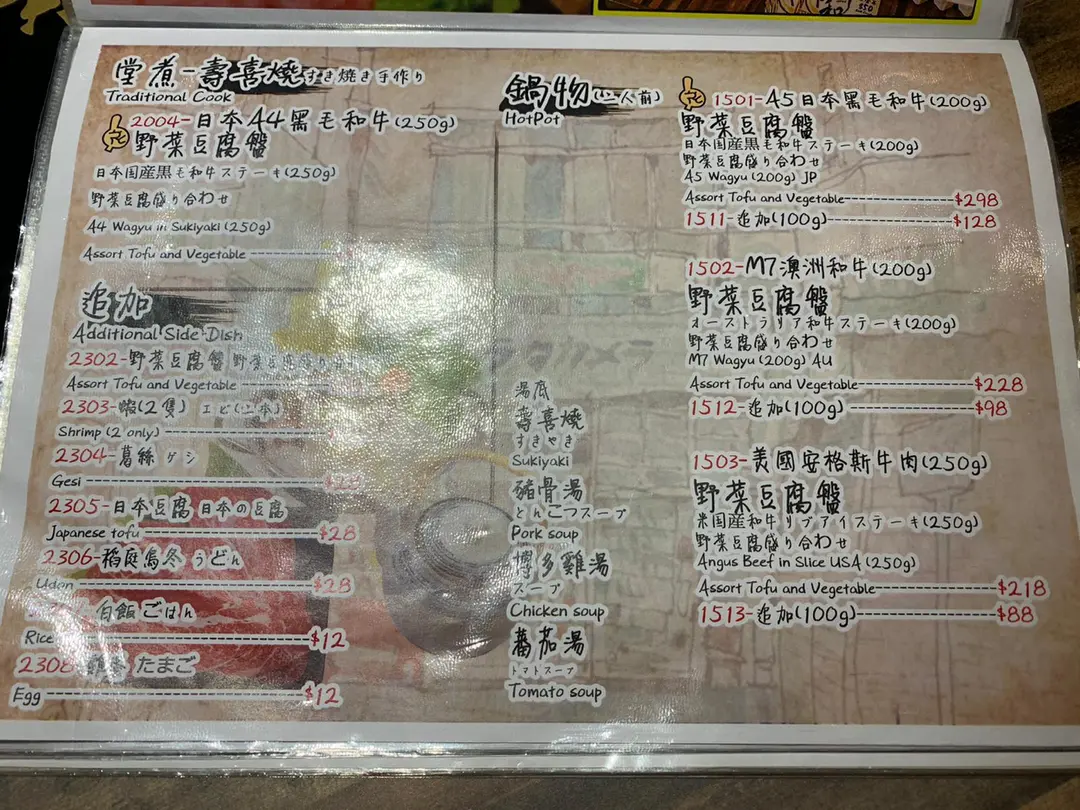 堂煮-壽喜燒すき焼き手作り
Traditional Cook
2004-日本A4黑毛和牛(250g)
野菜豆腐盤
日本国産黒毛和牛ステーキ(250g)
野菜豆腐盛り合わせ
A4 Wagyu in Sukiyaki (250g)
Assort Tofu and Vegetable
追加
Additional Side Dish
2302-野菜豆腐盤
Assort Tofu and Vegetable
2303-蝦(2隻) エビ(二本)
Shrimp (2 only)
2304-葛絲
Gesi $28
2305-日本豆腐 日本の豆腐
Japanese tofu $28
2306-稻庭烏冬 うどん
Udon $28
白飯 ごはん
Rice $12
2308 たまご
Egg $12
鍋物(二人前)
HotPot
湯底
壽喜燒
すきやき
Sukiyaki
豬骨湯
とんこつスープ
Pork soup
博多雞湯
スープ
Chicken soup
蕃茄湯
トマトスープ
Tomato soup
1501-A5日本黑毛和牛(200g)
野菜豆腐盤
日本国産黒毛和牛ステーキ(200g)
野菜豆腐盛り合わせ
A5 Wagyu (200g) JP
Assort Tofu and Vegetable $298
1511-追加(100g) $128
1502-M7澳洲和牛(200g)
野菜豆腐盤
オーストラリア和牛ステーキ(200g)
野菜豆腐盛り合わせ
M7 Wagyu (200g) AU
Assort Tofu and Vegetable $228
1512-追加(100g) $98
1503-美國安格斯牛肉(250g)
野菜豆腐盤
米国産和牛リブアイステーキ(250g)
野菜豆腐盛り合わせ
Angus Beef in Slice USA (250g)
Assort Tofu and Vegetable $218
1513-追加(100g) $88